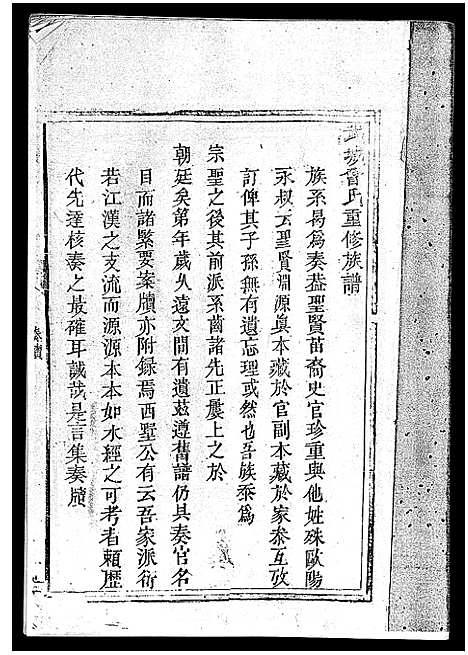 曾氏重修族譜
族系曷為奏蓋聖賢苗裔史官珍重與他姓殊歐陽
永叔云聖賢淵源眞本藏於官副本藏於家叅互攷
訂俾其子孫無有遺忘理或然也吾族忝為
宗聖之後其前派系齒諸先正屢上之於
朝廷矣第年歲久遠文間有遺茲遵舊譜仍具奏官名
目而諸緊要案牘亦附錄焉西墅公有云吾家派衍
若江漢之支流而源源本本如水經之可考者賴歷
代先達核奏之最確耳誠哉是言集奏牘
奏牘